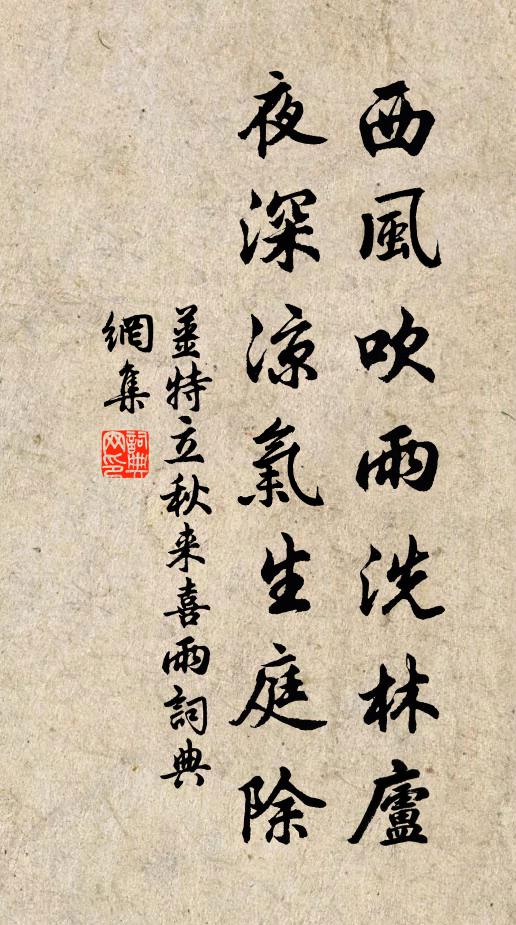 西風吹雨洗林廬
夜深涼氣生庭除
薑特立秋来喜雨詞典
網集
詞典
网印